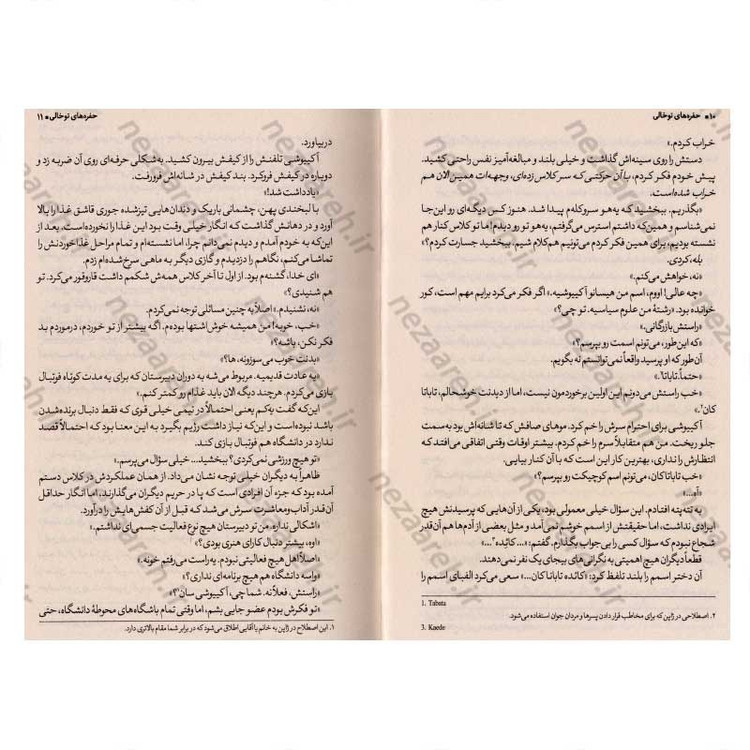 ۱۰ • حفره‌های توخالی
خراب کردم.»
دستش را روی سینه‌اش گذاشت و خیلی بلند و مبالغه‌آمیز نفس راحتی کشید.
پیش خودم فکر کردم، با آن حرکتی که سر کلاس زده‌ای، وجهه‌ات همین الان هم
خراب شده‌است.
«بگذریم. ببخشید که یه‌هو سروکله‌م پیدا شد. هنوز کس دیگه‌ای رو این‌جا
نمی‌شناسم و همین‌که داشتم استرس می‌گرفتم، یه‌هو تو رو دیدم! ما تو کلاس کنار هم
نشسته بودیم، برای همین فکر کردم می‌تونیم هم‌کلام شیم. ببخشید جسارت کردم؟»
بله، کردی.
«نه، خواهش می‌کنم.»
«چه عالی! اووم، اسم من هیسانو آکیبوشیه.» اگر فکر می‌کرد برایم مهم است، کور
خوانده بود. «رشتهٔ من علوم سیاسیه. تو چی؟»
«راستش بازرگانی.»
«که این‌طور، می‌تونم اسمت رو بپرسم؟»
آن‌طور که او پرسید واقعاً نمی‌توانستم نه بگویم.
«حتماً. تاباتا¹.»
«خب راستش می‌دونم این اولین برخوردمون نیست، اما از دیدنت خوشحالم، تاباتا
کان².»
آکیبوشی برای احترام سرش را خم کرد. موهای صافش که تا شانه‌اش بود به‌سمت
جلو ریخت. من هم متقابلاً سرم را خم کردم. بیشتر اوقات وقتی اتفاقی می‌افتد که
انتظارش را نداری، بهترین کار این است که با آن کنار بیایی.
«خب تاباتا کان، می‌تونم اسم کوچیکت رو بپرسم؟»
«اه...»
به تته‌پته افتادم. این سؤال خیلی معمولی بود. یکی از آن‌هایی که پرسیدنش هیچ
ایرادی نداشت، اما حقیقتش از اسمم خوشم نمی‌آمد و مثل بعضی از آدم‌ها هم آن‌قدر
شجاع نبودم که سؤال کسی را بی‌جواب بگذارم. گفتم: «... کائده³...»
قطعاً دیگران هیچ اهمیتی به نگرانی‌های بیجای یک نفر نمی‌دهند.
آن دختر اسمم را بلند تلفظ کرد: «کائده تاباتا کان...» سعی می‌کرد الفبای اسمم را
1. Tabata
۲. اصطلاحی در ژاپن که برای مخاطب قرار دادن پسرها و مردان جوان استفاده می‌شود.
3. Kaede
حفره‌های توخالی • ۱۱
دربیاورد.
آکیبوشی تلفنش را از کیفش بیرون کشید. به‌شکلی حرفه‌ای روی آن ضربه زد و
دوباره در کیفش فرو کرد. بند کیفش در شانه‌اش فرورفت.
«یادداشت شد!»
با لبخندی پهن، چشمانی باریک و دندان‌هایی تیز شده جوری قاشق غذا را بالا
آورد و در دهانش گذاشت که انگار خیلی وقت بود این غذا را نخورده‌است. بعد از
این‌که به خودم آمدم و دیدم نمی‌دانم چرا، اما نشسته‌ام و تمام مراحل غذا خوردنش را
تماشا می‌کنم، نگاهم را دزدیدم و گازی دیگر به ماهی سرخ‌شده‌ام زدم.
«ای خدا، گشنه‌م بود. از اول تا آخر کلاس همه‌ش شکمم داشت قاروقور می‌کرد. تو
هم شنیدی؟»
«نه، نشنیدم.» اصلاً به چنین مسائلی توجه نمی‌کردم.
«خب، خوبه! من همیشه خوش‌اشتها بوده‌م. اگه بیشتر از تو خوردم، درموردم بد
فکر نکن، باشه؟»
«بدنت خوب می‌سوزونه، ها؟»
«یه عادت قدیمیه. مربوط می‌شه به دوران دبیرستان که برای یه مدت کوتاه فوتبال
بازی می‌کردم. هرچند دیگه الان باید غذام رو کمتر کنم.»
این‌که گفت یه‌کم یعنی احتمالاً در تیمی خیلی قوی که فقط دنبال برنده‌شدن
باشد نبوده‌است و این‌که نیاز داشت رژیم بگیرد به این معنا بود که احتمالاً قصد
ندارد در دانشگاه هم فوتبال بازی کند.
«تو هیچ ورزشی نمی‌کردی؟ ببخشید... خیلی سؤال می‌پرسم.»
ظاهراً به دیگران خیلی توجه نشان می‌داد. از همان عملکردش در کلاس دستم
آمده بود که جزء آن افرادی است که پا در حریم دیگران می‌گذارند، اما انگار حداقل
آن‌قدر آداب‌ومعاشرت سرش می‌شد که قبل از آن کفش‌هایش را درآورد.
«اشکالی نداره. من تو دبیرستان هیچ نوع فعالیت جسمی‌ای نداشتم.»
«اوه، بیشتر دنبال کارای هنری بودی؟»
«اصلاً اهل هیچ فعالیتی نبودم. یه‌راست می‌رفتم خونه.»
«واسه دانشگاه هم هیچ برنامه‌ای نداری؟»
«راستش، فعلاً نه. شما چی، آکیبوشی سان¹؟»
«تو فکرش بودم عضو جایی بشم، اما وقتی تمام باشگاه‌های محوطهٔ دانشگاه، حتی
۱. این اصطلاح در ژاپن به خانم یا آقایی اطلاق می‌شود که در برابر شما مقام بالاتری دارد.
nezaareh.ir